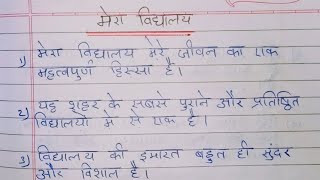 मेरा विद्यालय
1) मेरा विद्यालय मेरे जीवन का एक
महत्वपुर्ण हिस्सा है।
2) यह शहर के सबसे पुराने और प्रतिष्ठित
विद्यालयों मे से एक है।
3) विद्यालय की इमारत बहुत ही सुंदर
और विशाल है।